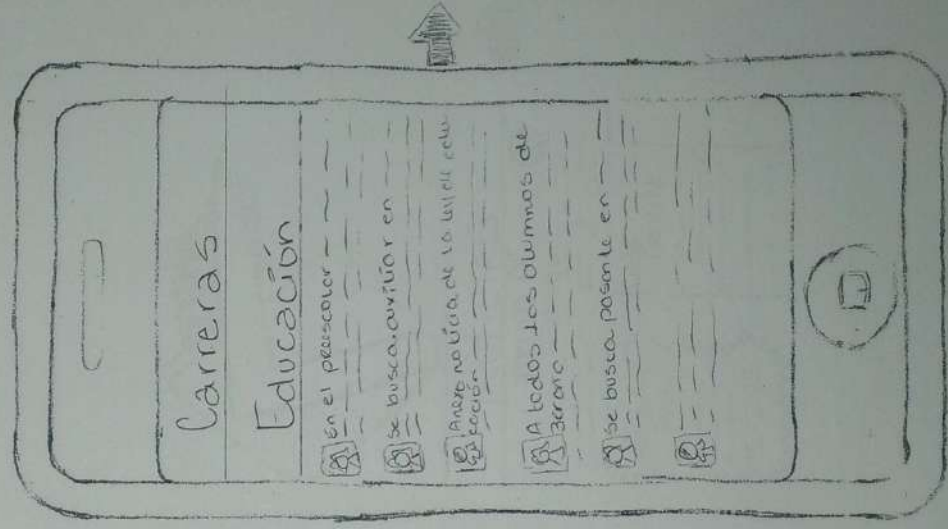 Carreras
Educación
En el preescolar
Se busca auxiliar en
Anexo noticia de la ley de edu
cación
A todos los alumnos de
3erano
Se busca pasante en